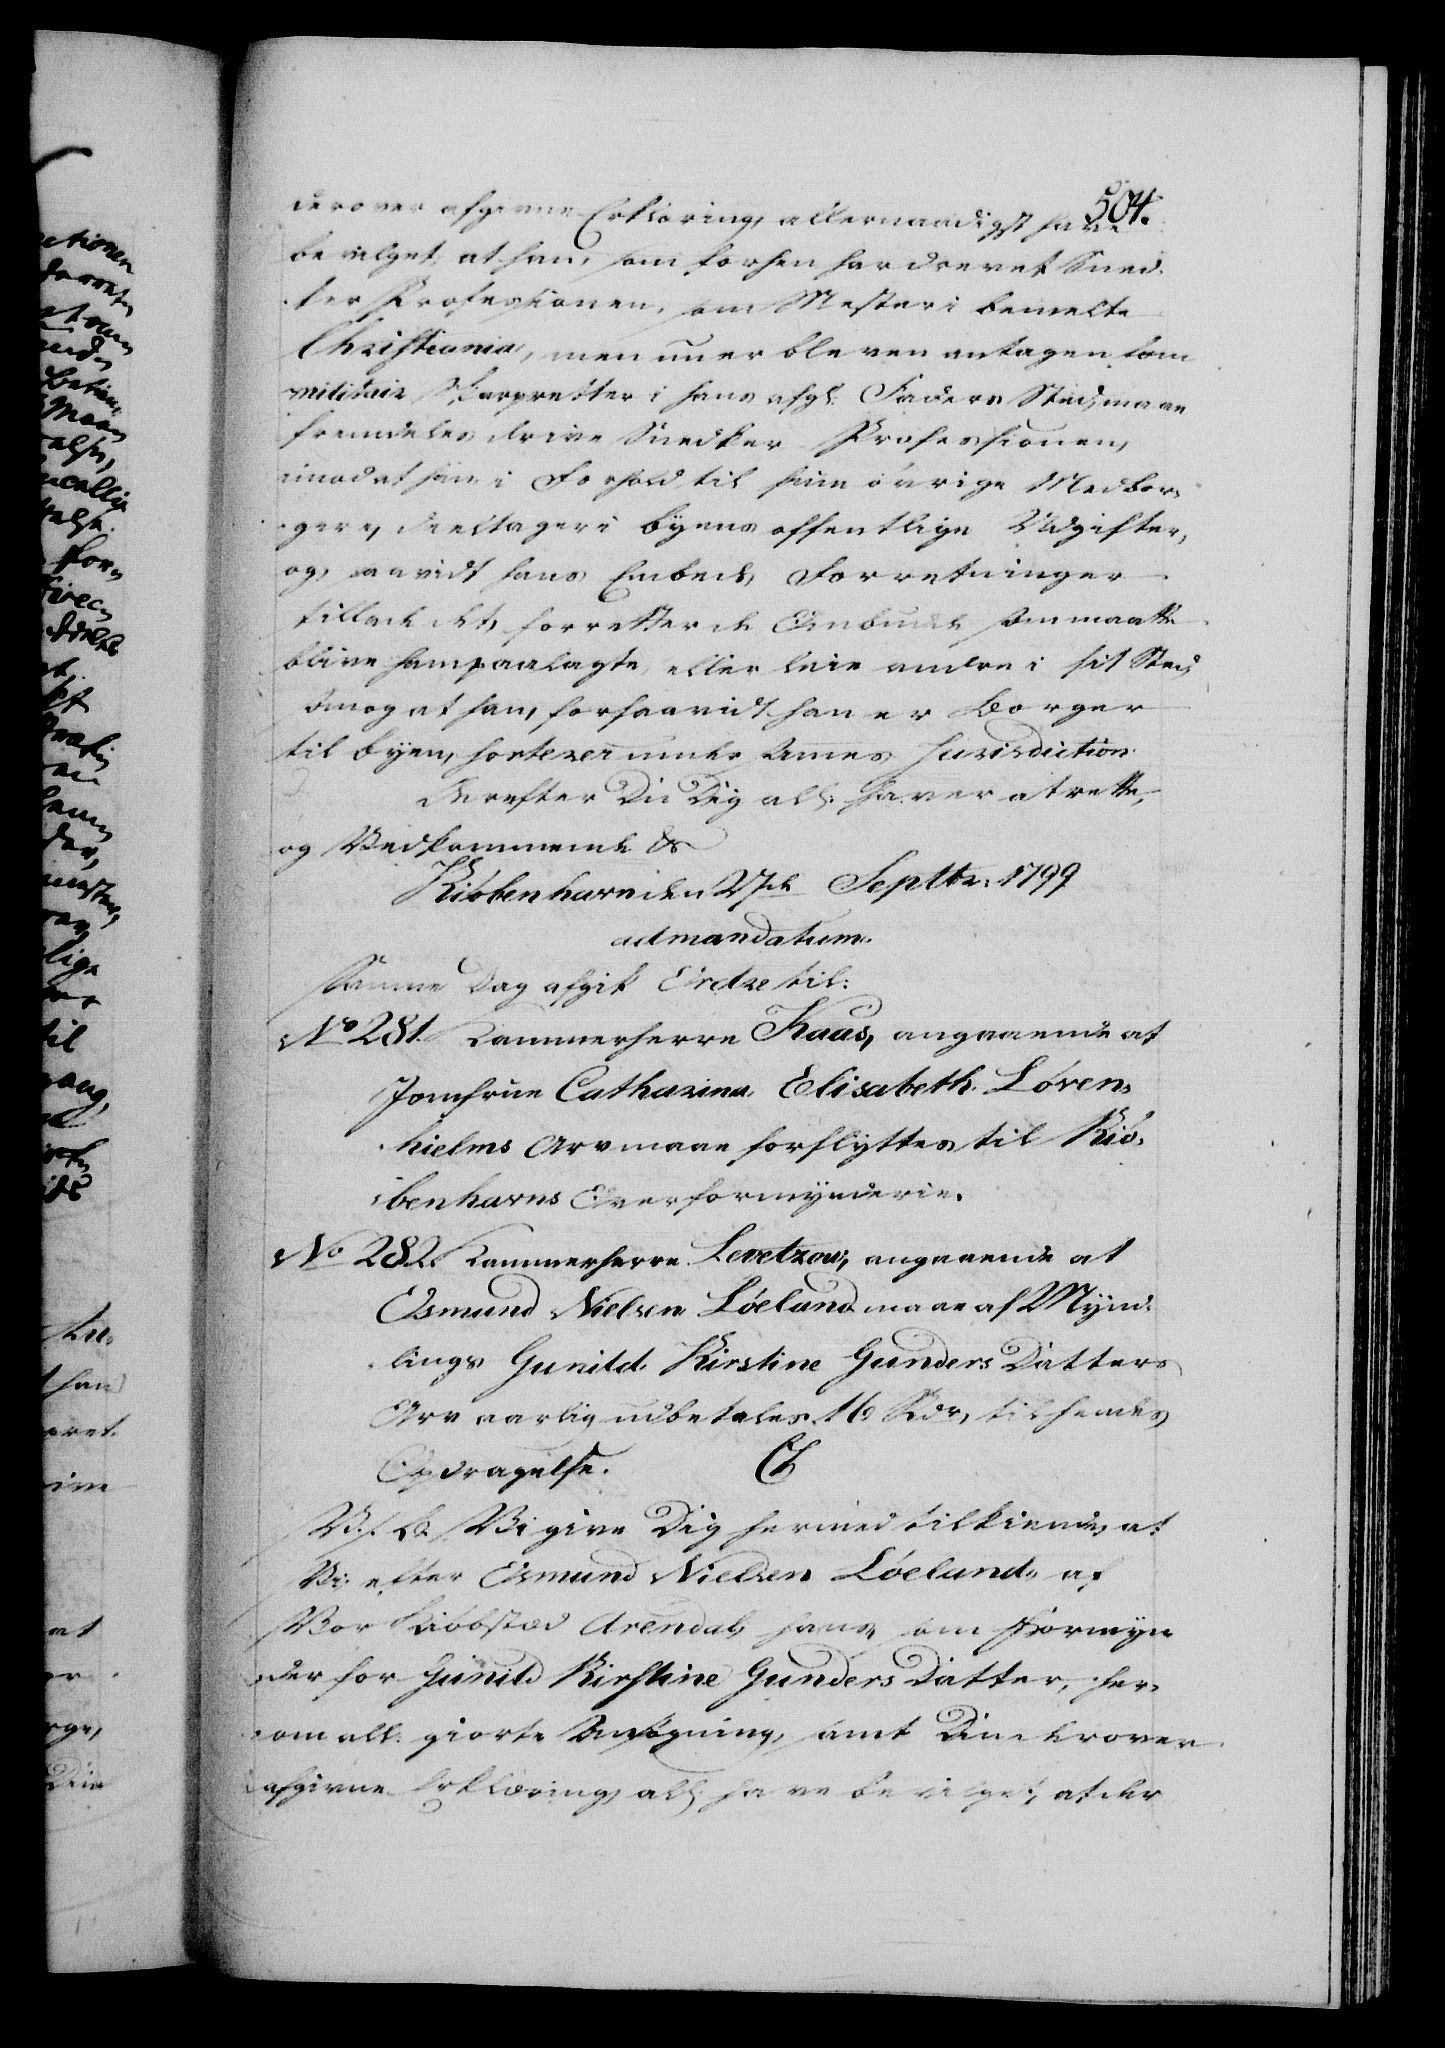 504.
derover afgivne Erklæring, allernaadigst have
bevilget, at han, som forhen har drevet Sned¬
ker Professionen, som Mester i bemelte
Christiania, men nu er bleven antagen som
militair Skarpretter i hans afgl. Faders Sted, maae
fremdeles drive Snedker Professionen,
imod at han i Forhold til sine øvrige Medbor¬
gere, deeltager i Byens offentlige Udgifter,
og, saavidt hans Embeds Forretninger
tillade det, forretter de Ombude som maatte
blive ham paalagte, eller leie andre i sit Sted
Dmog at han, forsaavidt han er Borger
til Byen, sorterer under Amts Jurisdiction.
Derefter Du Dig all. haver at rette,
og Vedkommende &
Kiöbenhavn den 27de Septbr: 1799
ad mandatum.
Samme Dag afgik Ordre til:
No 281. Kammerherre Kaas, angaaende at
Jomfrue Catharina Elisabeth Löven¬
hielms Arv maae forflyttes til Kiö¬
benhavns Overformynderie.
No 282. Kammerherre Levetzow, angaaende at
Osmund Nielsen Löelund maae af Mynd¬
lings Gunild Kirstine Gunders Datters
Arv aarlig udbetales 16 Rdr, til hendes
Opdragelse.
V. s. G. Vi give Dig hermed tilkiende, at
Vi efter Osmund Nielsen Löelund, af
Vor Kiöbstæd Arendal, hans, som Formyn
der for Gunild Kirstine Gunders Datter, her¬
om all. giorte Ansögning, samt Din derover
afgivne Erklæring, all. have bevilget, at der